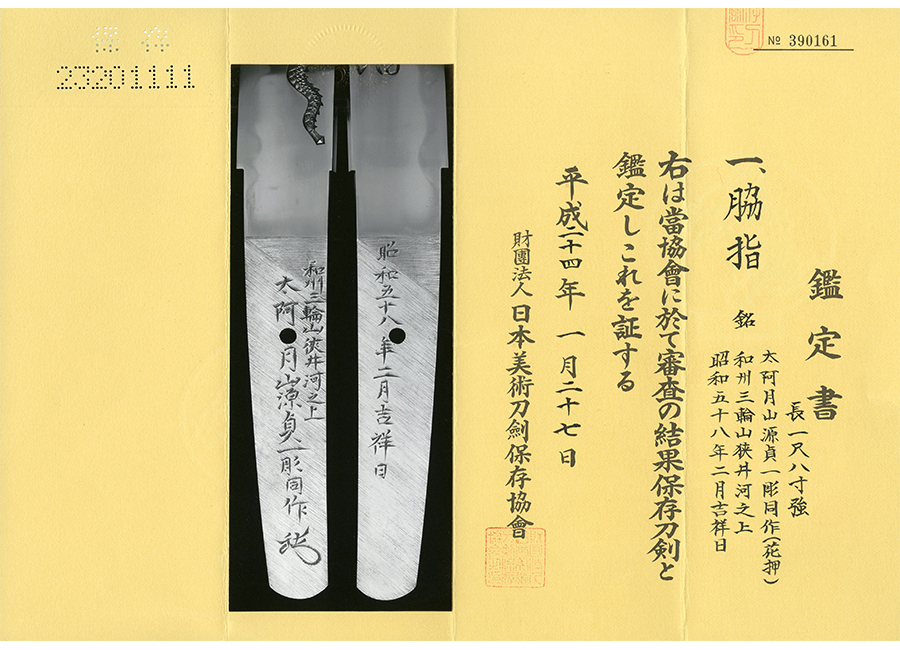 № 390161
鑑定書
一、脇指
長一尺八寸強
銘
太阿月山源貞一彫同作(花押)
和州三輪山狭井河之上
昭和五十八年二月吉祥日
右は當協會に於て審査の結果保存刀剣と
鑑定しこれを証する
平成二十四年 一月二十七日
財團法人日本美術刀劍保存協會
昭和五十八年二月吉祥日
和州三輪山狭井河之上
太阿月山源貞一彫同作
保存
23201111